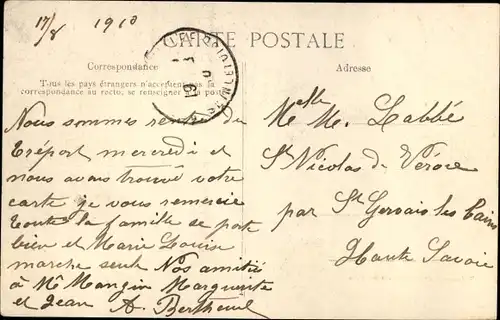 17/8 1910
CARTE POSTALE
Correspondance
Tous les pays étrangers n'acceptent pas la
correspondance au recto, se renseigner à la poste
Nous sommes rentrés du
Tréport mercredi et
nous avons trouvé votre
carte je vous remercie
toute la famille se porte
bien et Marie Louise
marche seule Nos amitiés
à Mr Mangin Marguerite
et Jean A. Bertheuil
Adresse
Melle M. Labbé
St Nicolas de Véroce
par St Gervais les Bains
Haute Savoie